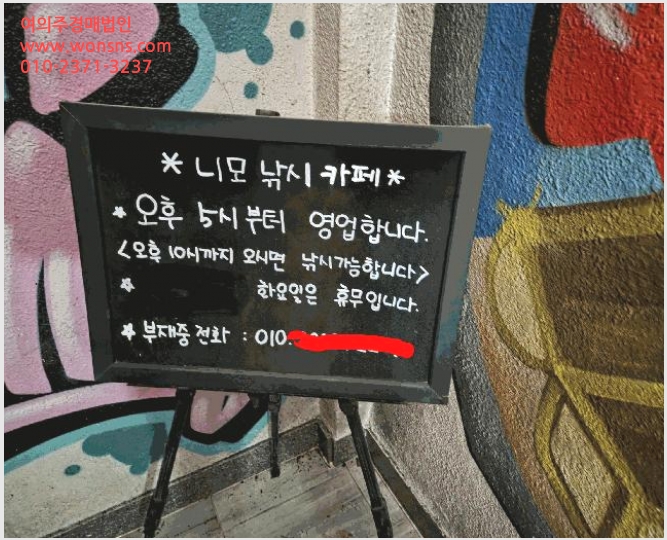 여의주경매법인
www.wonsns.com
010-2371-3237
* 니모 낚시 카페 *
* 오후 5시부터 영업합니다.
<오후 10시까지 오시면 낚시가능합니다>
* 화요일은 휴무입니다.
* 부재중 전화 : 010.